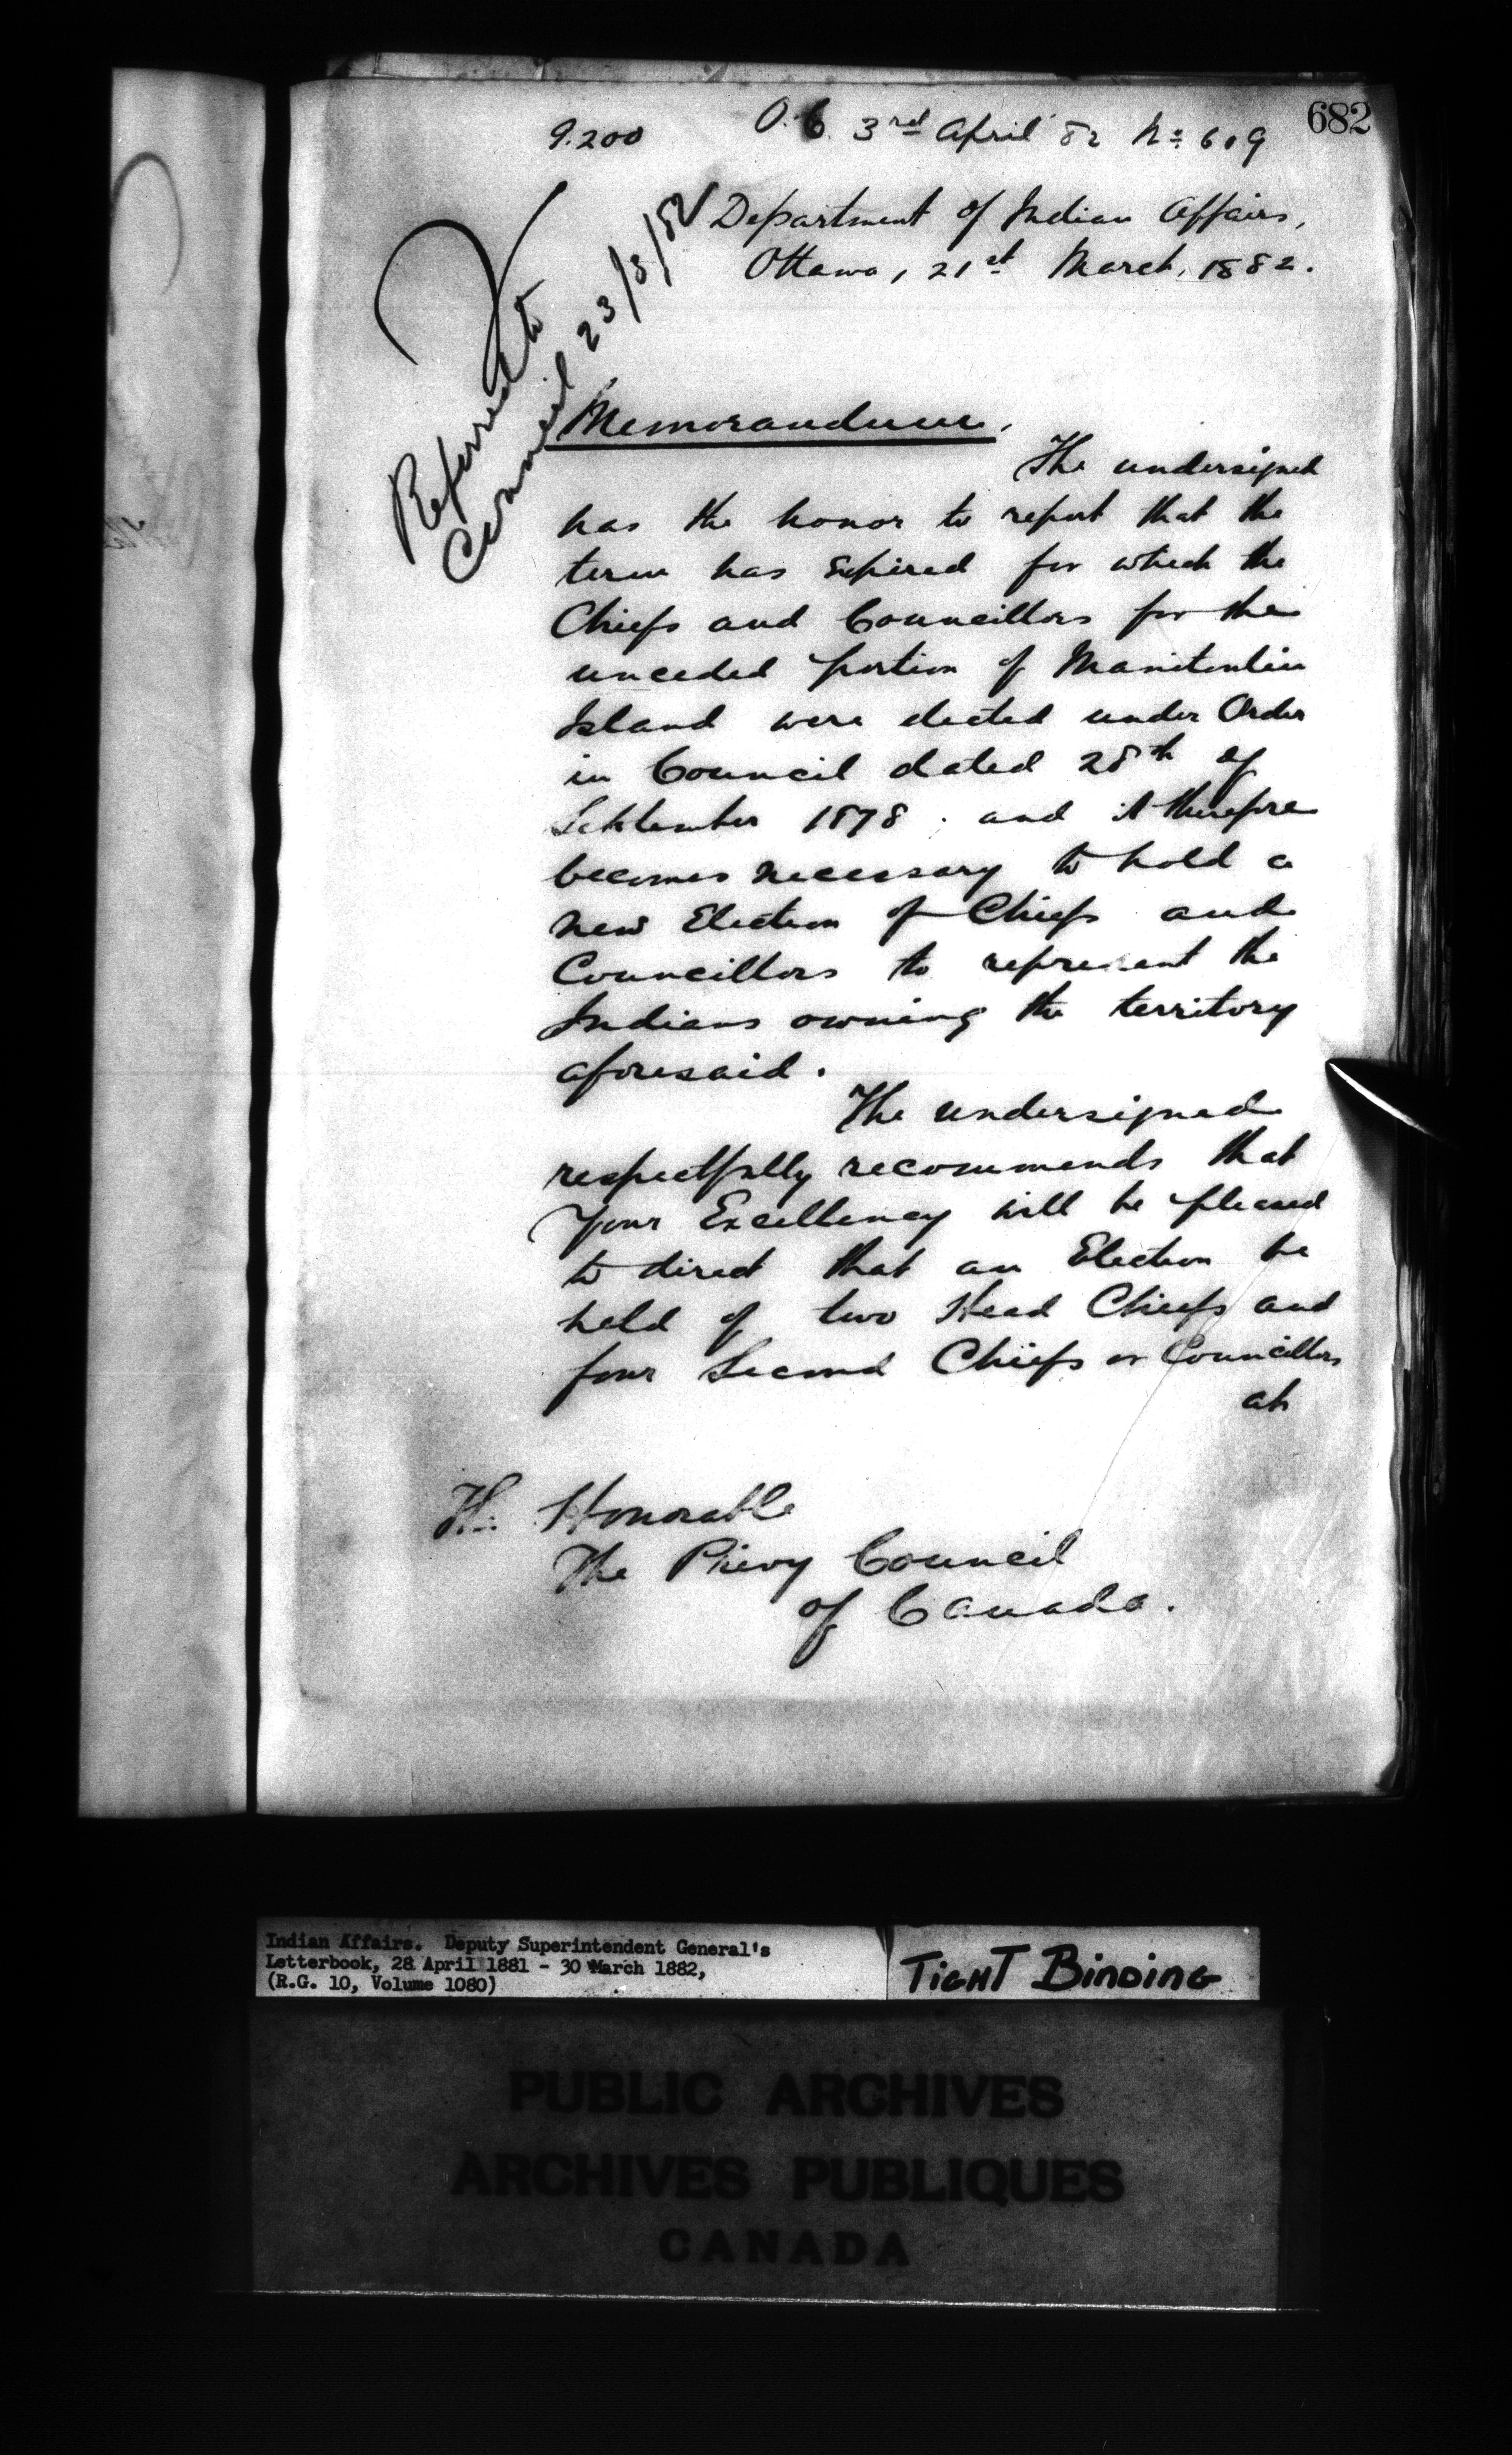 682
9.200 O.C. 3rd April 82 No 609
Department of Indian Affairs,
Ottawa, 21st March, 1882.
Referred to
Council 23/3/82
Memorandum.
The undersigned
has the honor to report that the
term has expired for which the
Chiefs and Councillors for the
unceded portion of Manitoulin
Island were elected under Order
in Council dated 28th of
September 1878; and it therefore
becomes necessary to hold a
new Election of Chiefs and
Councillors to represent the
Indians owning the territory
aforesaid.
The undersigned
respectfully recommends that
Your Excellency will be pleased
to direct that an Election be
held of two Head Chiefs and
four Second Chiefs or Councillors
at
Honorable
The Privy Council
of Canada.
Indian Affairs. Deputy Superintendent General's
Letterbook, 28 April 1881 - 30 March 1882,
(R.G. 10, Volume 1080)
TIGHT BINDING
PUBLIC ARCHIVES
ARCHIVES PUBLIQUES
CANADA